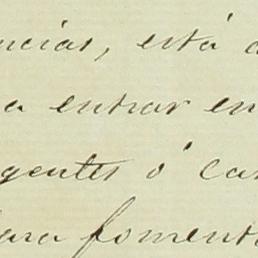 ncias, está a
a entrar en
gentes ó ca
ara foment